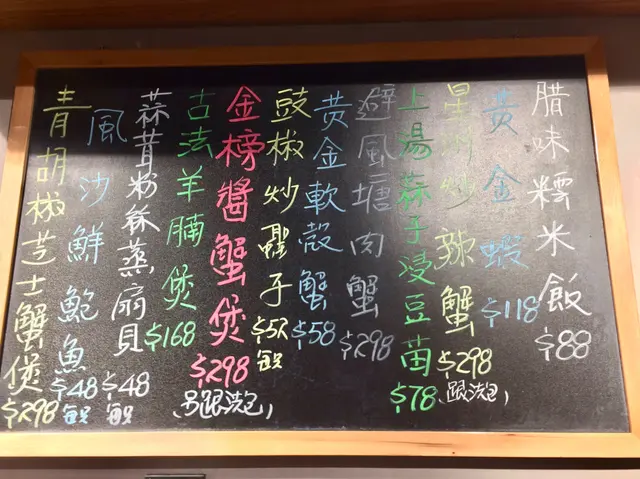 腊味糯米飯 $88
黃金蝦 $118
星州炒辣蟹 $298 (跟洗包)
上湯蒜子浸豆苗 $78
避風塘肉蟹 $298
黃金軟殼蟹 $58
豉椒炒子
金榜醬蟹煲 $298 跟洗包)
古法羊腩煲 $168
蒜茸粉絲蒸扇貝 $48
風沙鮮鮑魚 $48
青胡椒芝士蟹煲 $298